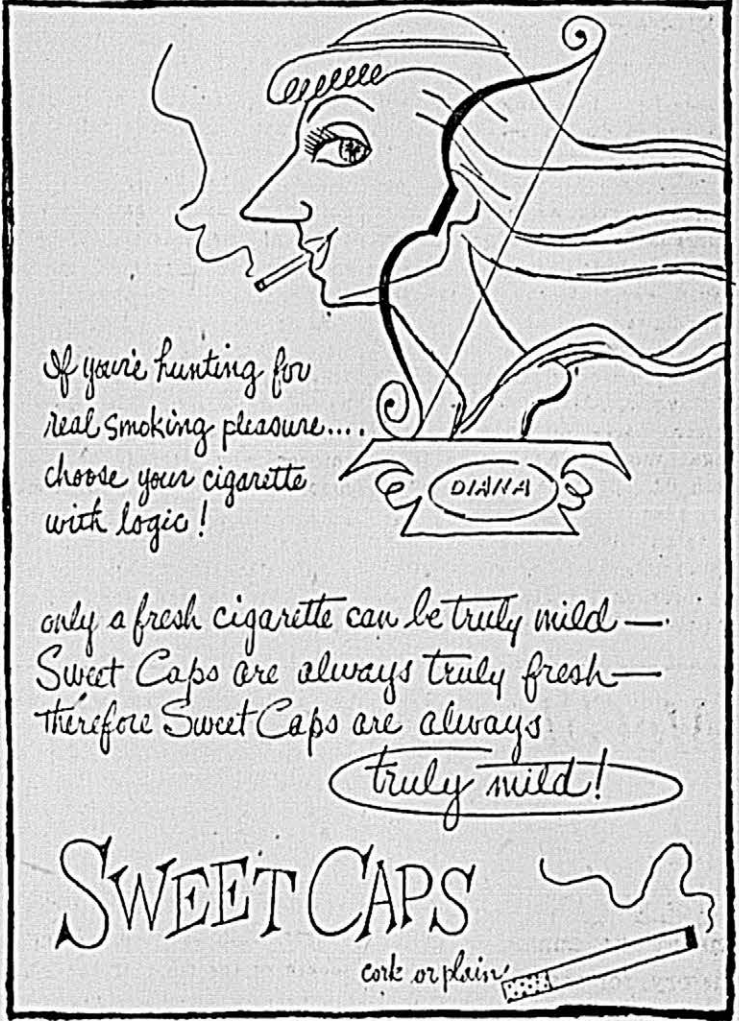 If you're hunting for
real smoking pleasure....
choose your cigarette
with logic!
DIANA
only a fresh cigarette can be truly mild—
Sweet Caps are always truly fresh—
therefore Sweet Caps are always
truly mild!
SWEET CAPS
cork or plain